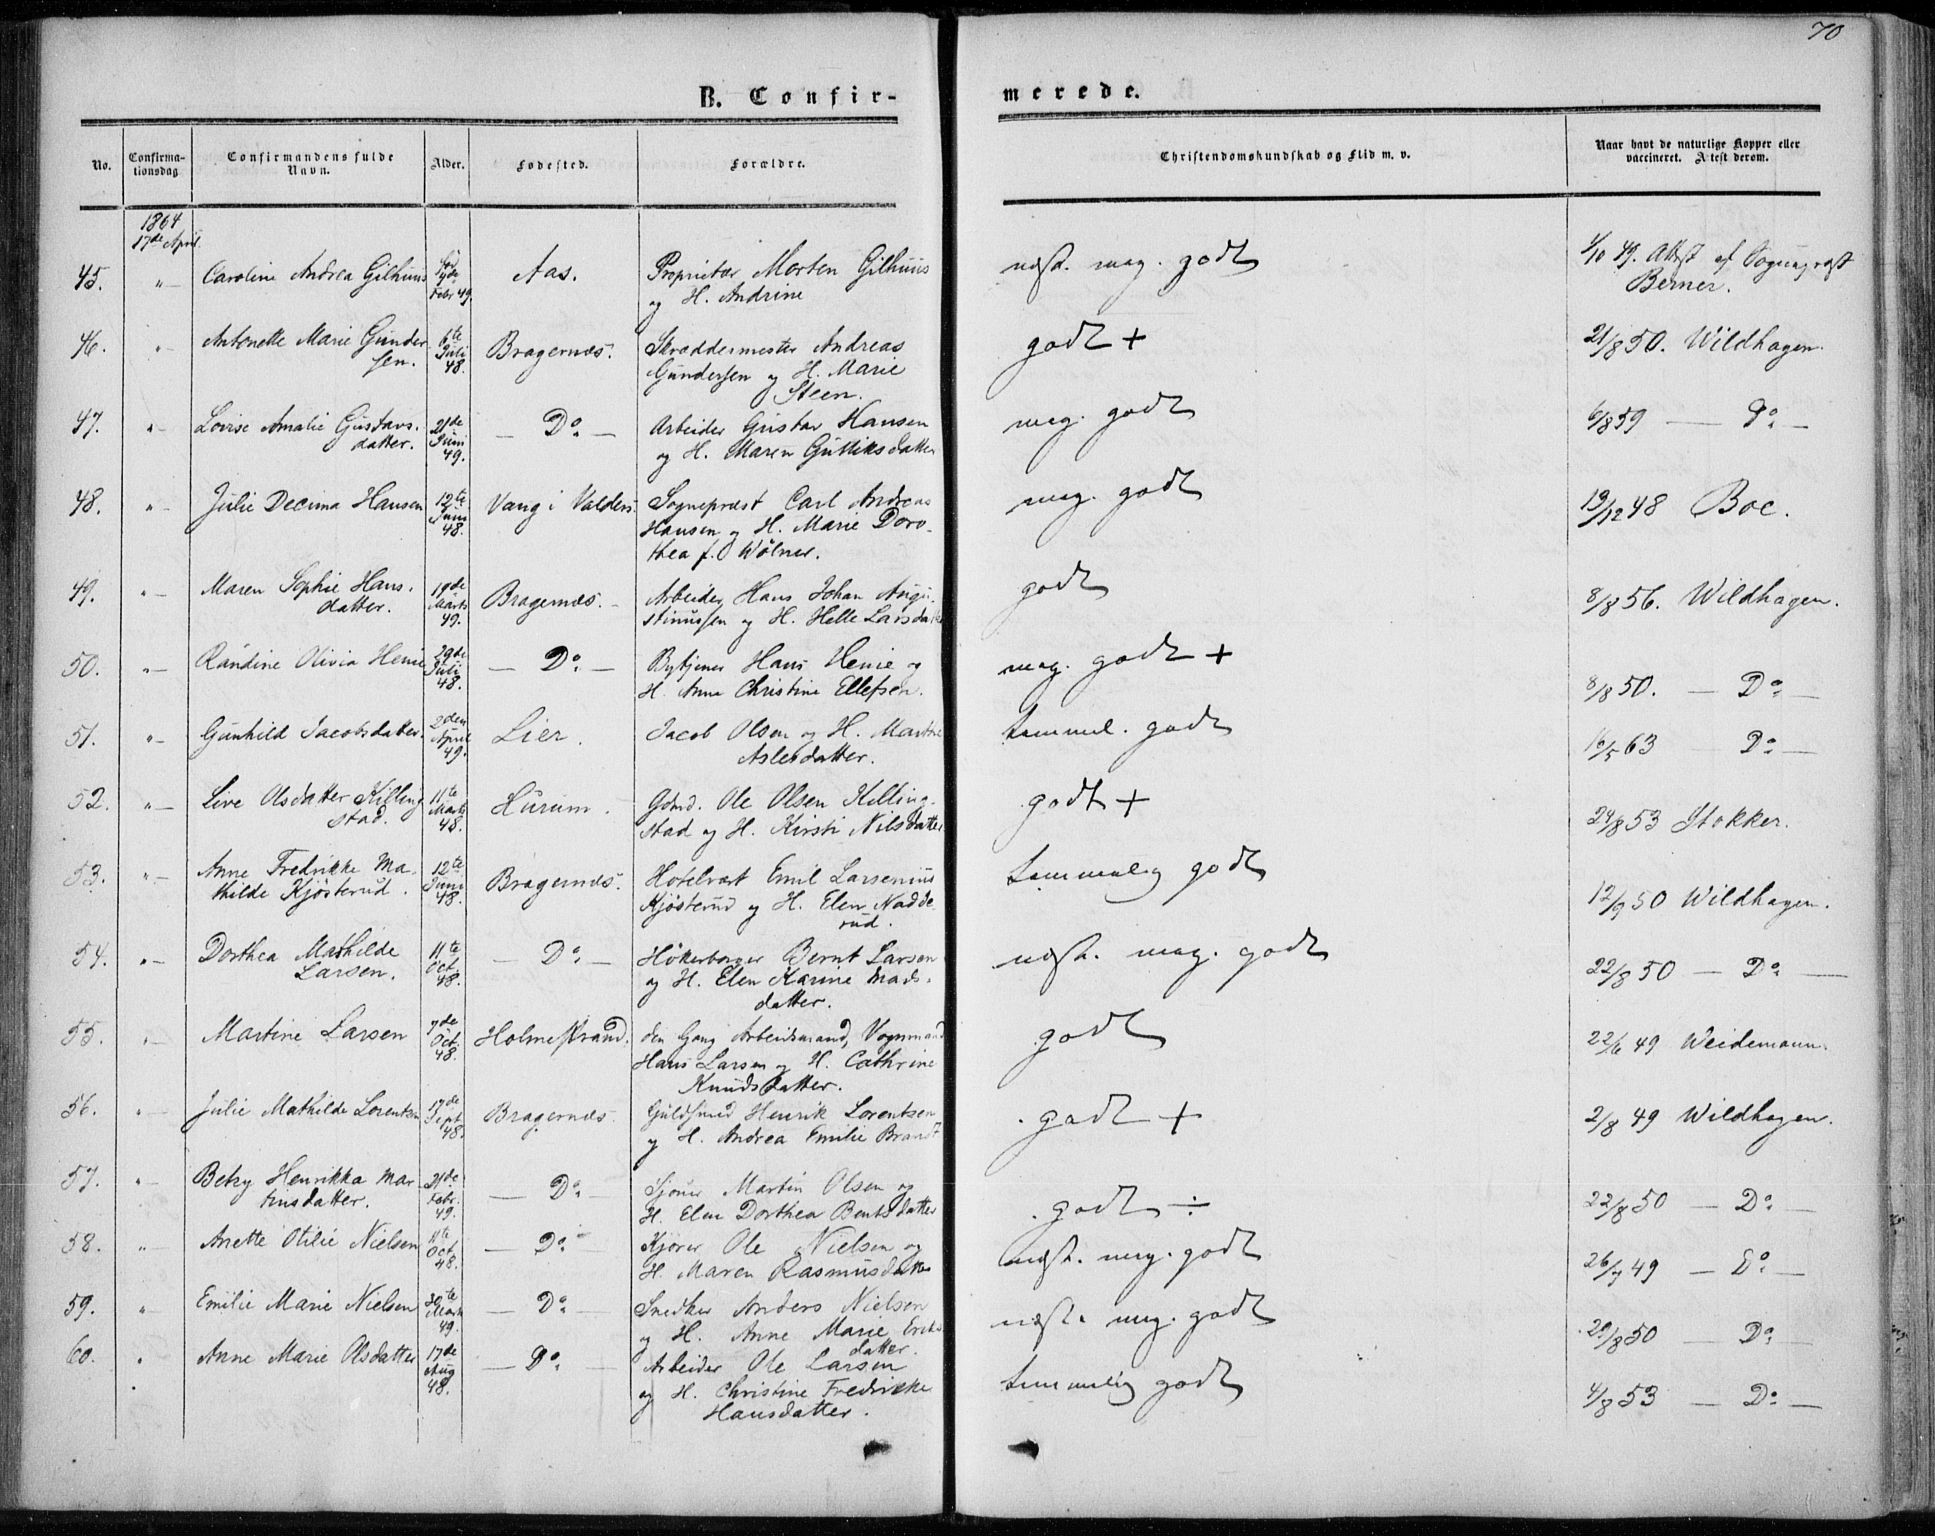 70
B. Confir-
merede.
No.
Confirma-
tionsdag
Confirmandens fulde
Navn.
Alder.
Fødested.
Forældre.
Christendomskundskab og Flid m. v.
Naar havt de naturlige Kopper eller
vaccineret. Attest derom.
1864
17de April
45. "— Caroline Andrea Gilhuus 9de Febr 49. Aas. Proprietær Morten Gilhuus
og H. Andrine
næst. meg. godt
1/10 49. Attest af Sognepræst
Berner.
46. " Antonette Marie Gunder-
sen. 6te Juli 48. Bragernæs. Skræddermester Andreas
Gundersen og H. Marie
Steen.
godt +
21/8 50. Wildhagen.
47. " Lovise Amalie Gustavs-
datter. 21de Juni 49. — Do — Arbeider Gustav Hansen
og H. Maren Gulliksdatter
meg. godt
6/8 59 — Do —
48. "— Julie Decima Hansen 12te Juni 48. Vang i Valders Sognepræst Carl Andreas
Hansen og H. Marie Doro-
thea f. Wölner.
meg. godt
19/12 48 Boe.
49. "— Maren Sophie Hans-
datter. 19de Marts 49. Bragernæs. Arbeider Hans Johan Augu-
stinussen og H. Helle Larsdatter
godt
8/8 56. Wildhagen.
50. "— Randine Olivia Henie 29de Juli 48. — Do — Bytjener Hans Henie og
H. Anne Christine Ellefsen.
meg. godt +
8/8 50. — Do —
51. "— Gunhild Jacobsdatter. 2den April 49. Lier. Jacob Olsen og H. Marthe
Aslesdatter.
temmel. godt
16/5 63 Do —
52. "— Live Olsdatter Killing-
stad. 11te Marts 48. Hurum. Gdmd. Ole Olsen Killing-
stad og H. Kirsti Nilsdatter
godt +
24/8 53 Stokker.
53. "— Anne Fredrikke Ma-
thilde Kjösterud. 12te Juni 48. Bragernæs. Hotelvært Emil Larsenius
Kjösterud og H. Elen Nadde-
rud.
temmelig godt
12/9 50 Wildhagen.
54. "— Dorthea Mathilde
Larsen. 11te Oct. 48. — Do — Høkerborger Bernt Larsen
og H. Elen Karine Mads-
datter.
næst. meg. godt
22/8 50 — Do —
55. "— Martine Larsen 7de Oct. 48. Holmestrand. den Gang Arbeidsmand, Vognmand
Hans Larsen og H. Cathrine
Knudsdatter.
godt
22/6 49 Weidemann.
56. " Julie Mathilde Lorentzen 17de Sept 48. Bragernæs Guldsmed Henrik Lorentsen
og H. Andrea Emilie Brandt
godt +
2/8 49 Wildhagen.
57. " Betzy Henrikka Mar-
tinsdatter. 21de Febr. 49. — Do — Martin Olsen og
H. Elen Dorthea Berntsdatter
godt ÷
22/8 50 — Do —
58. " Anette Otilie Nielsen 11te Oct. 48. — Do Kjører Ole Nielsen og
H. Maren Rasmusdatter
næst. meg. godt
26/7 49 — Do —
59. " Emilie Marie Nielsen 30te Marts 49. — Do — Snedker Anders Nielsen
og H. Anne Marie Eriks-
datter.
næst. meg. godt
29/8 50 — Do —
60. " Anne Marie Olsdatter 17de Aug 48. — Do — Arbeider Ole Larsen
og H. Christine Fredrikke
Hansdatter.
temmelig godt
4/8 53 — Do —